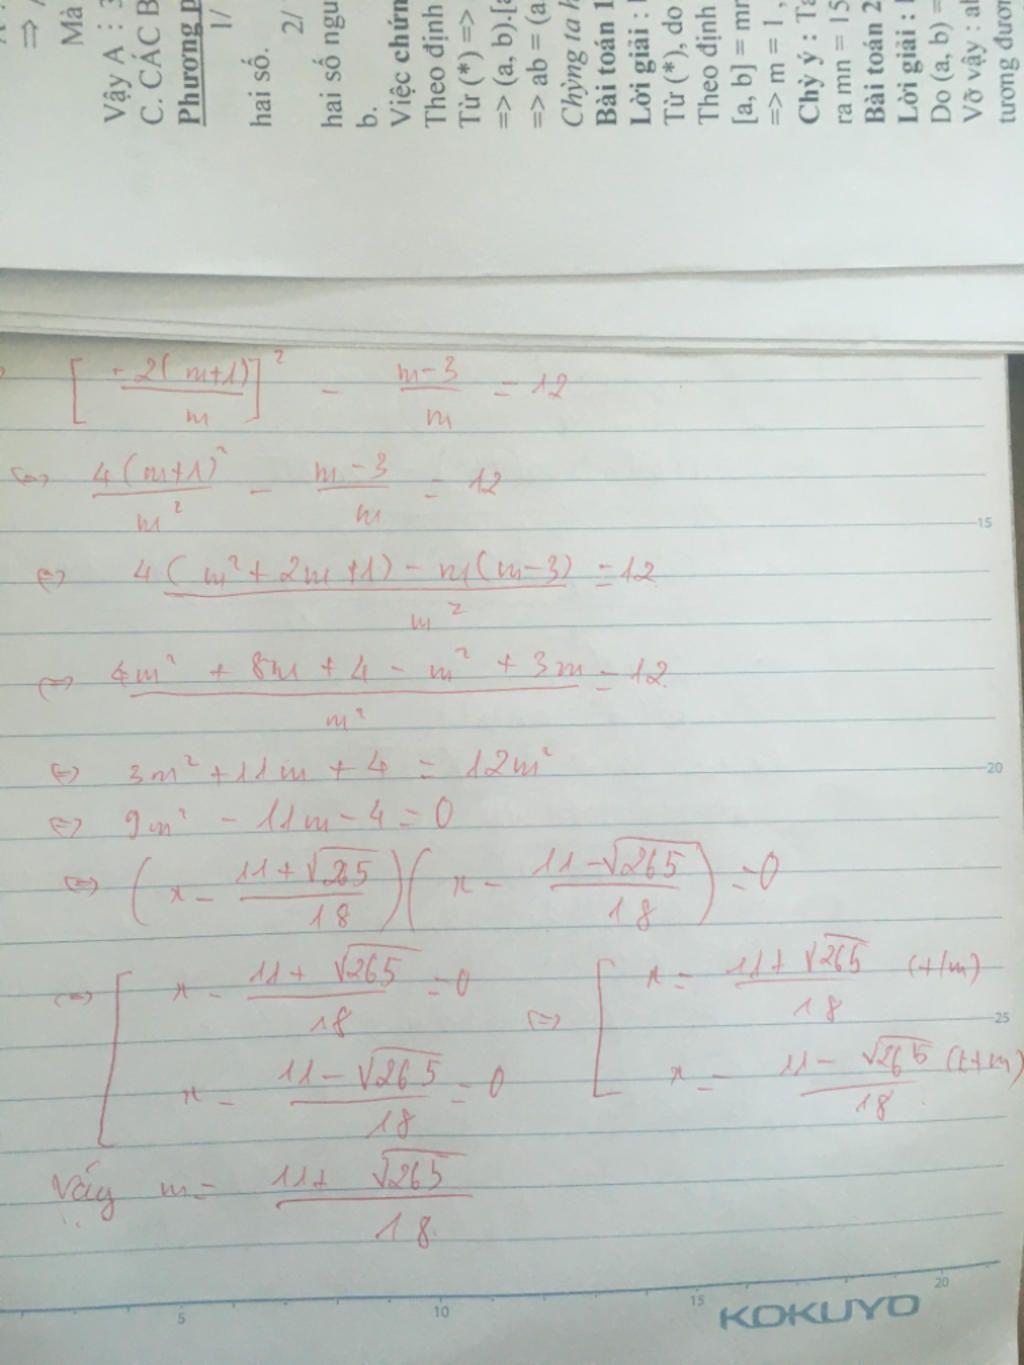 ⇒ /
Mà
Vậy A ⋮ 3
C. CÁC B
Phương p
1/
hai số.
2/
hai số ngu
b.
Việc chứn
Theo định
Từ (*) =>
=> (a, b).[a
=> ab = (a,
Chỳng ta h
Bài toán 1
Lời giải : 
Từ (*), do
Theo định
[a, b] = mn
=> m = 1 ,
Chỳ ý : Ta
ra mn = 15
Bài toán 2
Lời giải : 
Do (a, b) =
Vỡ vậy : a
tương đươn
[-2(m+1)/m]² - (m-3)/m = 12
⇔ 4(m+1)²/m² - (m-3)/m = 12
⇔ (4(m²+2m+1) - m(m-3))/m² = 12
⇔ (4m² + 8m + 4 - m² + 3m)/m² = 12
⇔ 3m² + 11m + 4 = 12m²
⇔ 9m² - 11m - 4 = 0
⇔ (x - (11+√265)/18)(x - (11-√265)/18) = 0
⇔ [ x - (11+√265)/18 = 0 ⇔ [ x = (11+√265)/18 (t/m)
x - (11-√265)/18 = 0 x = (11-√265)/18 (t/m)
Vậy m = (11+√265)/18
15
20
25
5 10 15 20
KOKUYO